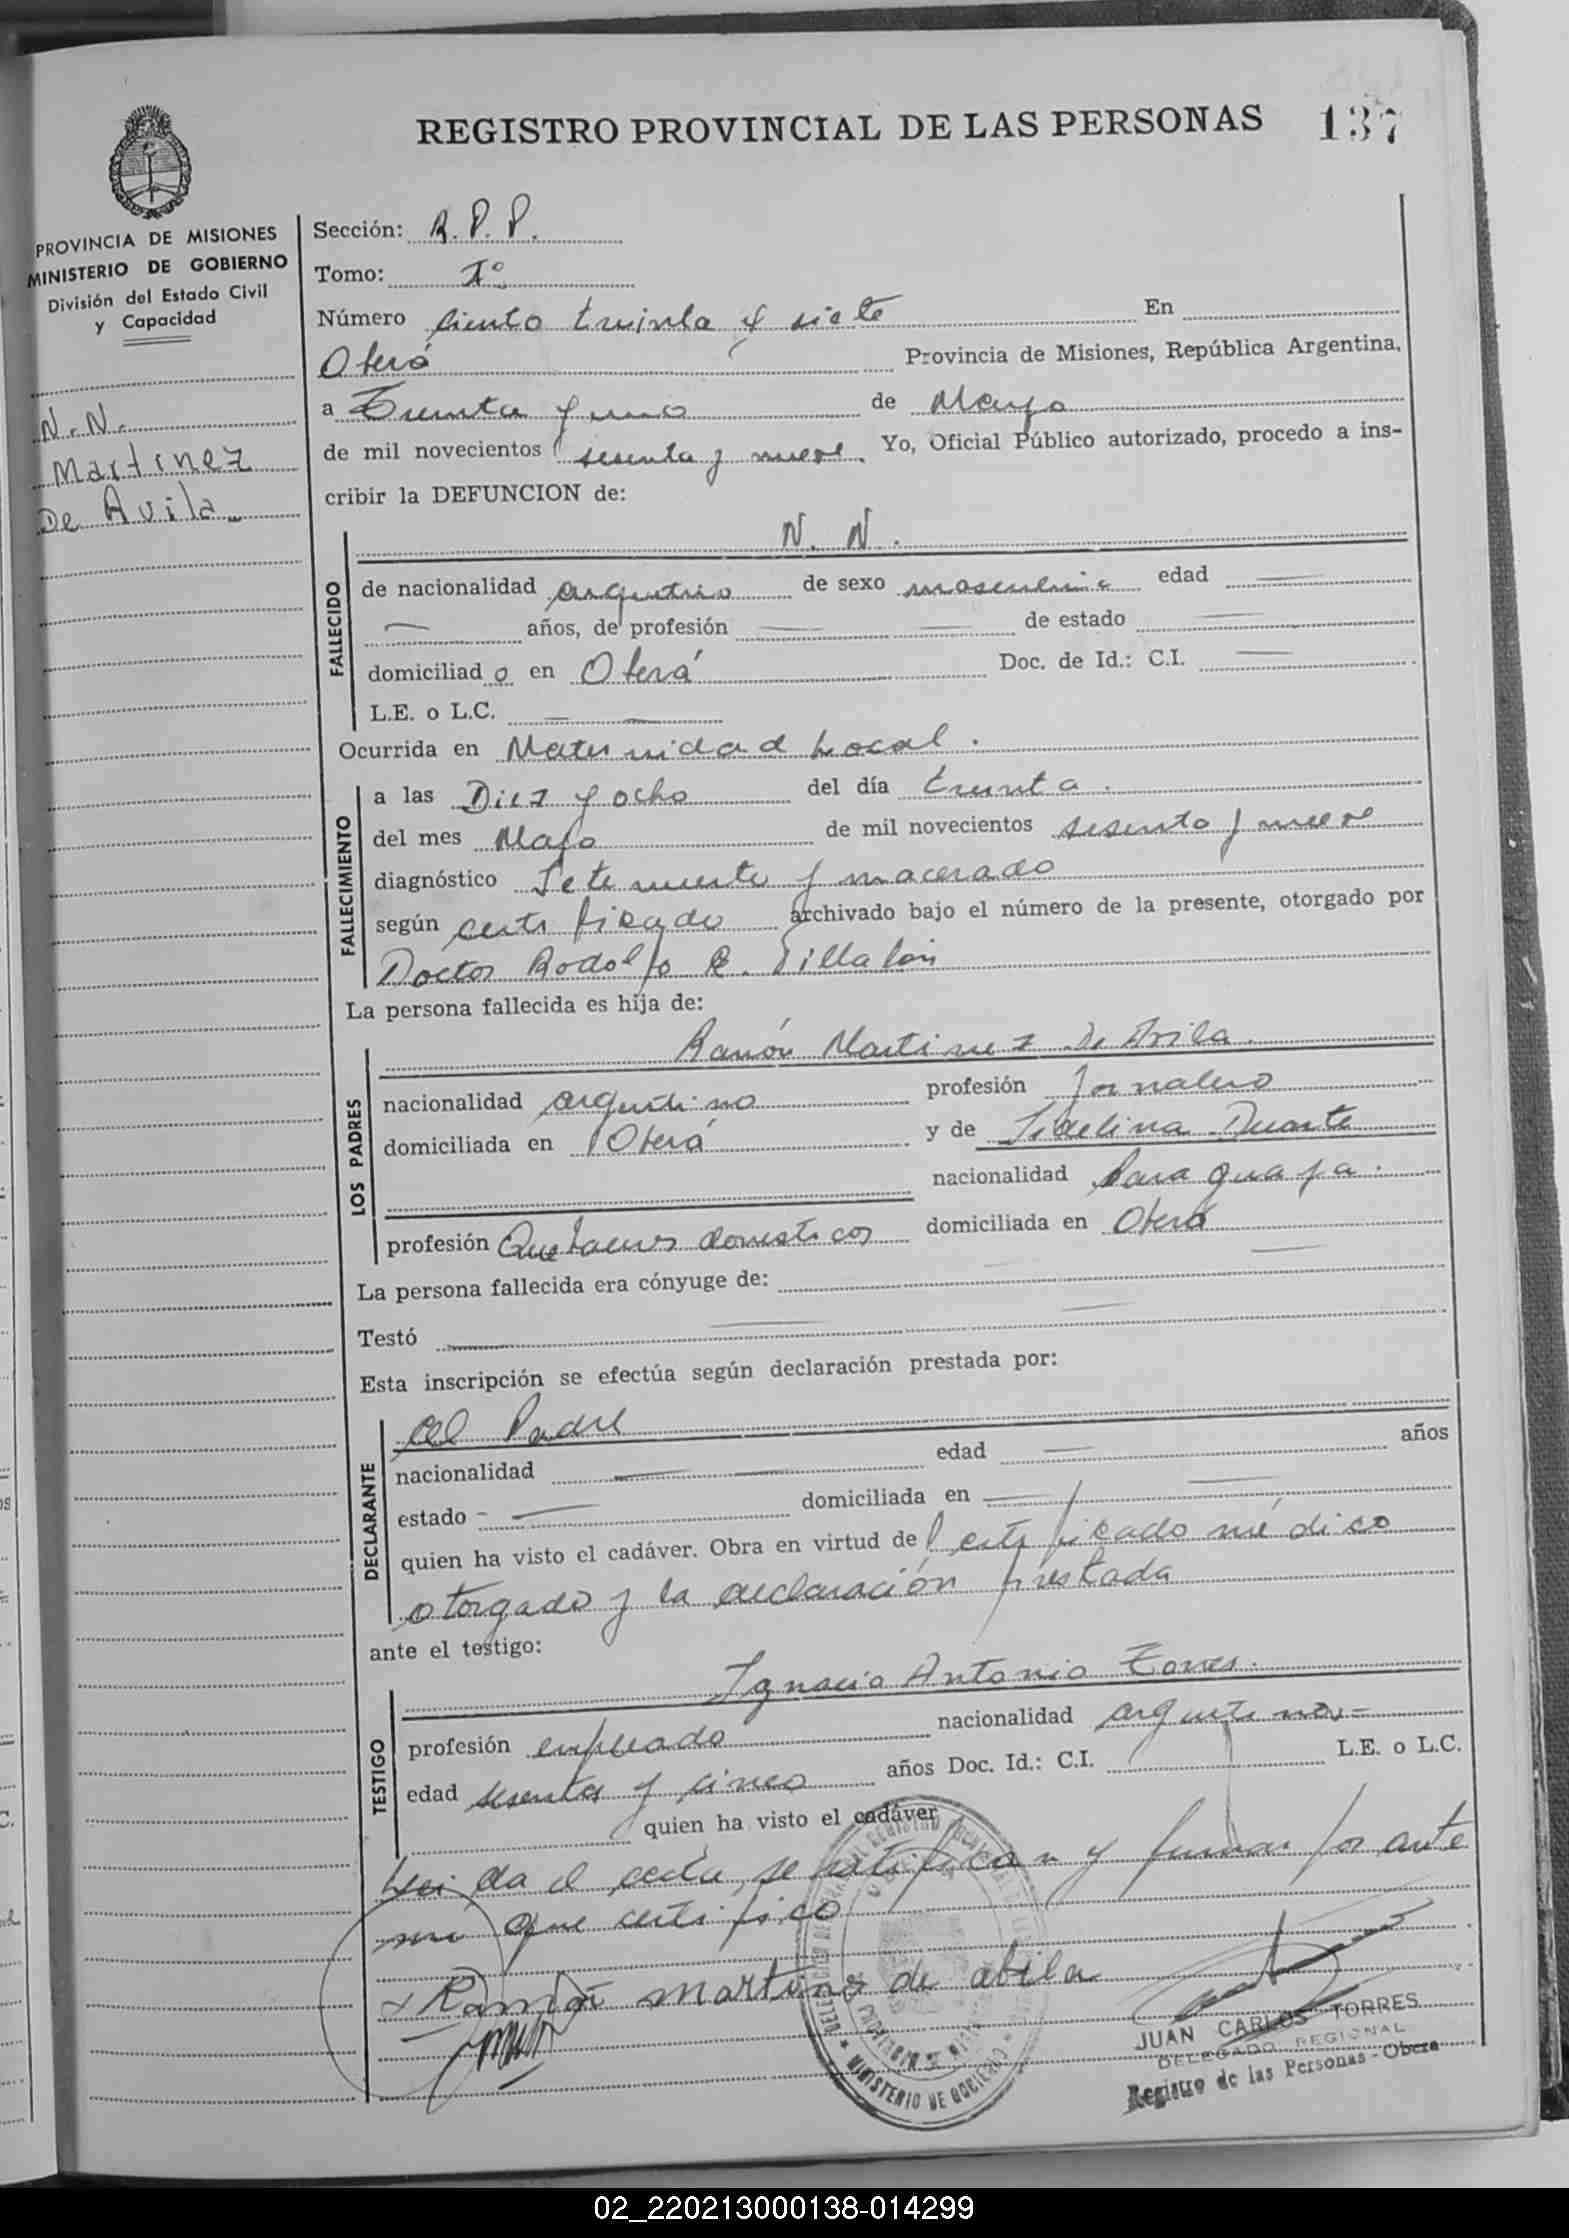 REGISTRO PROVINCIAL DE LAS PERSONAS 137
PROVINCIA DE MISIONES
MINISTERIO DE GOBIERNO
División del Estado Civil
y Capacidad
N. N.
Martinez
De Avila
Sección: R. P. P.
Tomo: 1º
Número ciento treinta y siete En
Oberá Provincia de Misiones, República Argentina,
a Treinta y uno de Mayo
de mil novecientos sesenta y nueve. Yo, Oficial Público autorizado, procedo a ins-
cribir la DEFUNCION de:
FALLECIDO
N. N.
de nacionalidad argentino de sexo masculino edad —
— años, de profesión — — de estado —
domiciliado en Oberá Doc. de Id.: C.I. —
L.E. o L.C. — —
Ocurrida en Maternidad Local.
FALLECIMIENTO
a las Diez y ocho del día treinta.
del mes Mayo de mil novecientos sesenta y nueve
diagnóstico Feto muerto y macerado
según certificado archivado bajo el número de la presente, otorgado por
Doctor Rodolfo R. Villalón
La persona fallecida es hija de:
LOS PADRES
Ramón Martinez De Avila.
nacionalidad argentino profesión Jornalero
domiciliada en Oberá y de Duarte
nacionalidad Paraguaya.
profesión Quehaceres domesticos domiciliada en Oberá
La persona fallecida era cónyuge de: — —
Testó — —
Esta inscripción se efectúa según declaración prestada por:
DECLARANTE
el Padre
nacionalidad — — edad — años
estado — domiciliada en — —
quien ha visto el cadáver. Obra en virtud del certificado médico
otorgado y la declaración prestada
ante el testigo:
TESTIGO
Ignacio Antonio Torres.
profesión empleado nacionalidad argentino
edad sesenta y cinco años Doc. Id.: C.I. L.E. o L.C.
quien ha visto el cadáver
Leida el acta, se ratifican y firman por ante
mi que certifico
Ramón martines de abila
MINISTERIO DE GOBIERNO
JUAN CARLOS TORRES
DELEGADO REGIONAL
Registro de las Personas - Obera
02_220213000138-014299